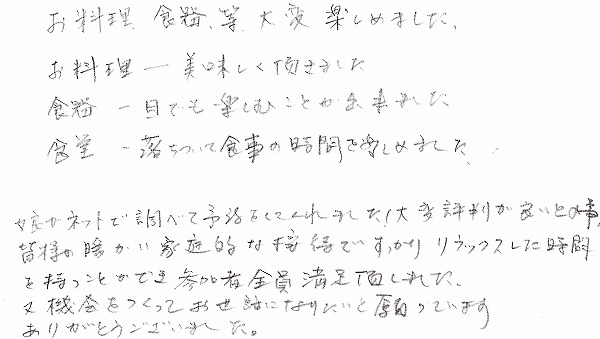 お料理、食器、等、大変楽しめました。
お料理ー美味しく頂きました
食器 ー目でも楽しむことが出来ました
食堂 ー落ちついて食事の時間を楽しめました。
娘がネットで調べて予約をしてくれました!大変評判が良いとの事、
皆様の暖かい家庭的な接待ですっかりリラックスした時間
を持つことができ参加者全員満足頂しました。
又機会をつくってお世話になりたいと願っています
ありがとうございました。